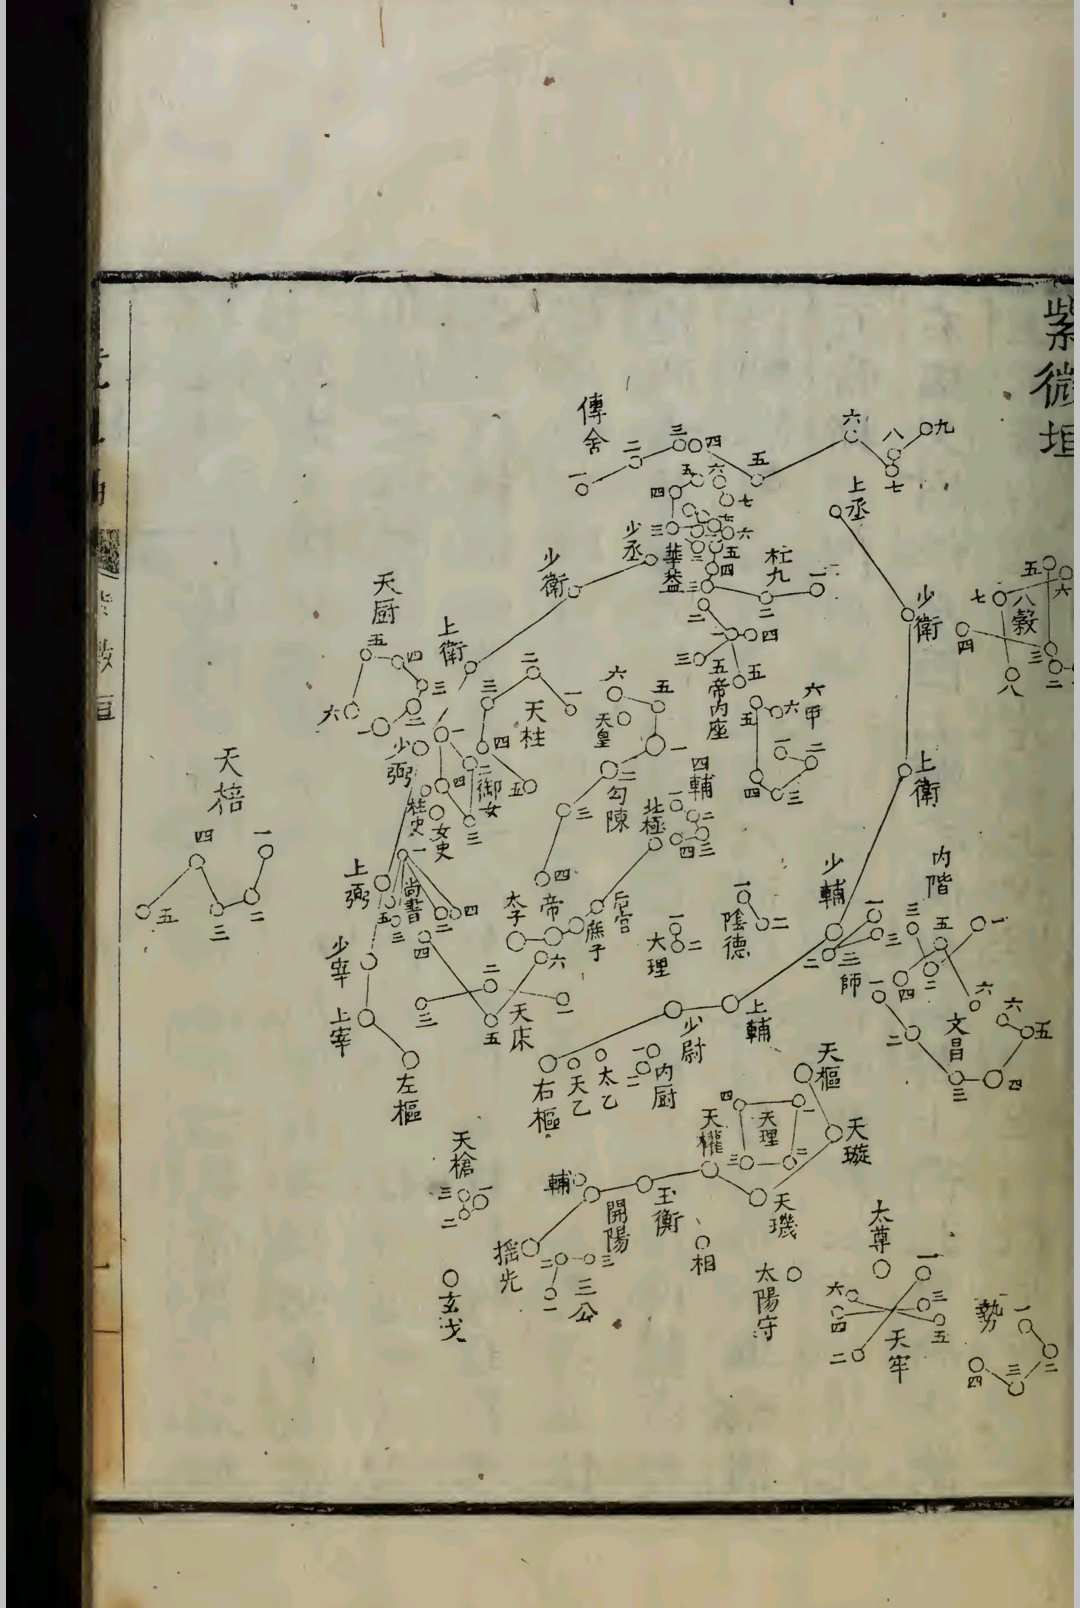 紫微垣
傳舍
一
二
三
四
五
六
七
八
九
上丞
少衛
上衛
少輔
上輔
少尉
右樞
八穀
四
五
六
七
三
二
八
華盖
三
四
五
六
七
六
五
四
三
二
一
杠九
二
一
五帝内座
一
二
三
四
五
六甲
一
二
三
四
五
六
少丞
少衛
上衛
少弼
上弼
少宰
上宰
左樞
天厨
一
二
三
四
五
六
天柱
一
二
三
四
五
御女
一
二
三
四
柱史
女史
尚書
一
二
三
四
五
天皇
勾陳
一
二
三
四
五
六
四輔
一
二
三
四
北極
后宫
庶子
帝
太子
大理
一
二
陰德
一
二
三師
一
二
三
内階
一
二
三
四
五
六
文昌
一
二
三
四
五
六
天床
一
二
三
四
五
六
天棓
一
二
三
四
五
天乙
太乙
内厨
一
二
天樞
天璇
天璣
天權
玉衡
開陽
摇光
輔
天理
一
二
三
四
天槍
一
二
三
玄戈
三公
一
二
三
相
太陽守
太尊
天牢
一
二
三
四
五
六
勢
一
二
三
四